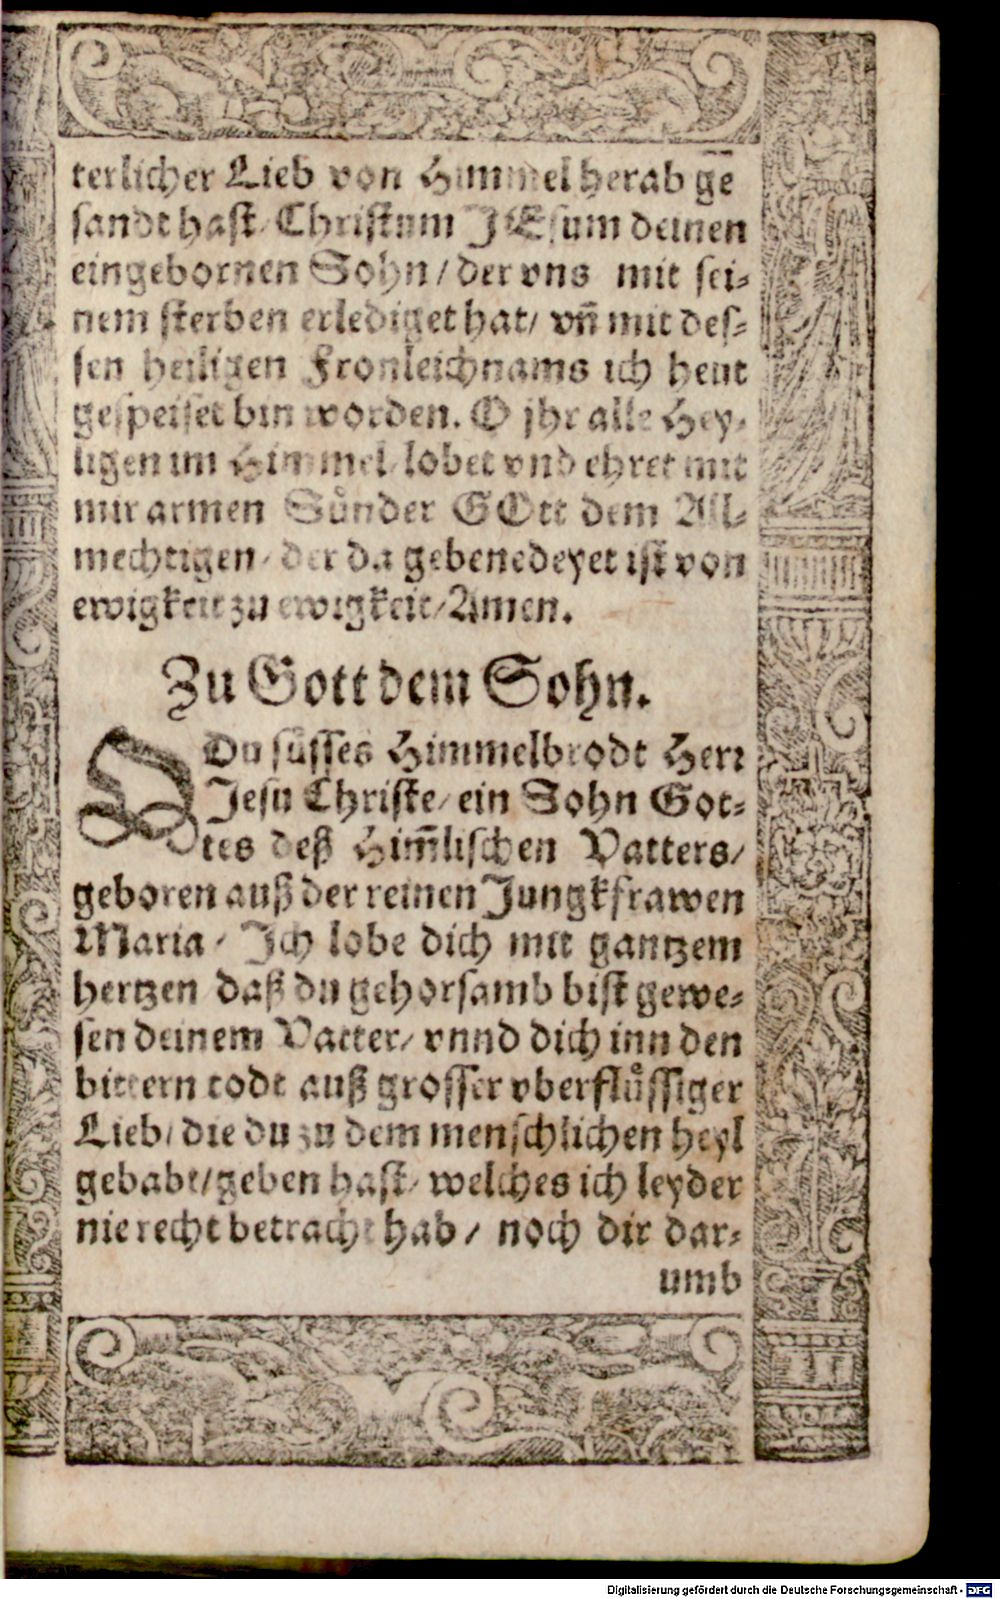 terlicher Lieb von Himmel herab ge
sandt hast/ Christum JEsum deinen
eingebornen Sohn/ der vns mit sei-
nem sterben erlediget hat/ vñ mit des-
sen heiligen Fronleichnams ich heut
gespeiset bin worden. O jhr alle Hey-
ligen im Himmel/ lobet vnd ehret mit
mir armen Sünder GOtt dem All-
mechtigen/ der da gebenedeyet ist von
ewigkeit zu ewigkeit/ Amen.
Zu Gott dem Sohn.
O Du süsses Himmelbrodt Herr
Jesu Christe/ ein Sohn Got-
tes deß Him̃lischen Vatters/
geboren auß der reinen Jungkfrawen
Maria/ Ich lobe dich mit gantzem
hertzen daß du gehorsamb bist gewe-
sen deinem Vatter/ vnnd dich inn den
bittern todt auß grosser vberflüssiger
Lieb/ die du zu dem menschlichen heyl
gehabt/ geben hast/ welches ich leyder
nie recht betracht hab/ noch dir dar-
umb
Digitalisierung gefördert durch die Deutsche Forschungsgemeinschaft - DFG